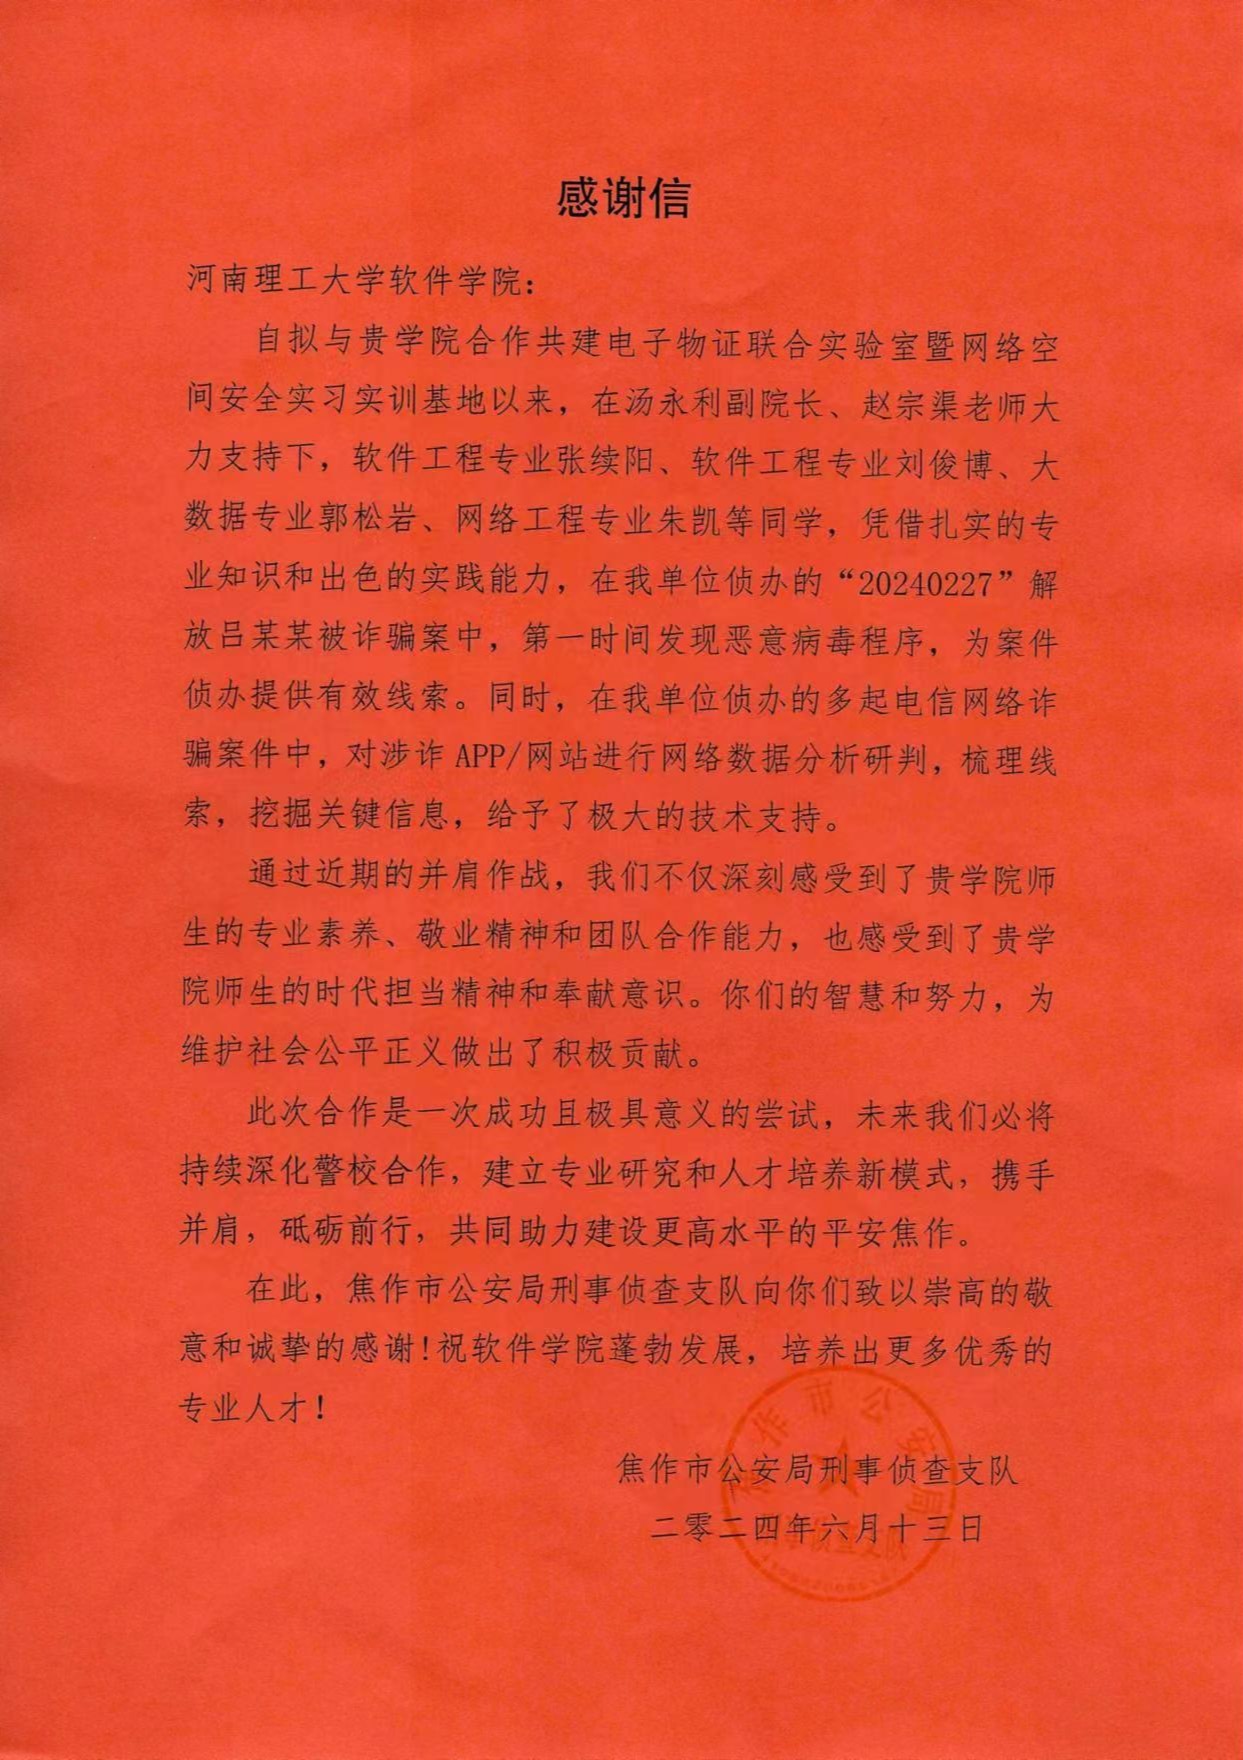 感谢信
河南理工大学软件学院：
自拟与贵学院合作共建电子物证联合实验室暨网络空
间安全实习实训基地以来，在汤永利副院长、赵宗渠老师大
力支持下，软件工程专业张续阳、软件工程专业刘俊博、大
数据专业郭松岩、网络工程专业朱凯等同学，凭借扎实的专
业知识和出色的实践能力，在我单位侦办的“20240227”解
放吕某某被诈骗案中，第一时间发现恶意病毒程序，为案件
侦办提供有效线索。同时，在我单位侦办的多起电信网络诈
骗案件中，对涉诈 APP/网站进行网络数据分析研判，梳理线
索，挖掘关键信息，给予了极大的技术支持。
通过近期的并肩作战，我们不仅深刻感受到了贵学院师
生的专业素养、敬业精神和团队合作能力，也感受到了贵学
院师生的时代担当精神和奉献意识。你们的智慧和努力，为
维护社会公平正义做出了积极贡献。
此次合作是一次成功且极具意义的尝试，未来我们必将
持续深化警校合作，建立专业研究和人才培养新模式，携手
并肩，砥砺前行，共同助力建设更高水平的平安焦作。
在此，焦作市公安局刑事侦查支队向你们致以崇高的敬
意和诚挚的感谢！祝软件学院蓬勃发展，培养出更多优秀的
专业人才！
焦作市公安局刑事侦查支队
二零二四年六月十三日
焦作市公安局
刑事侦查支队